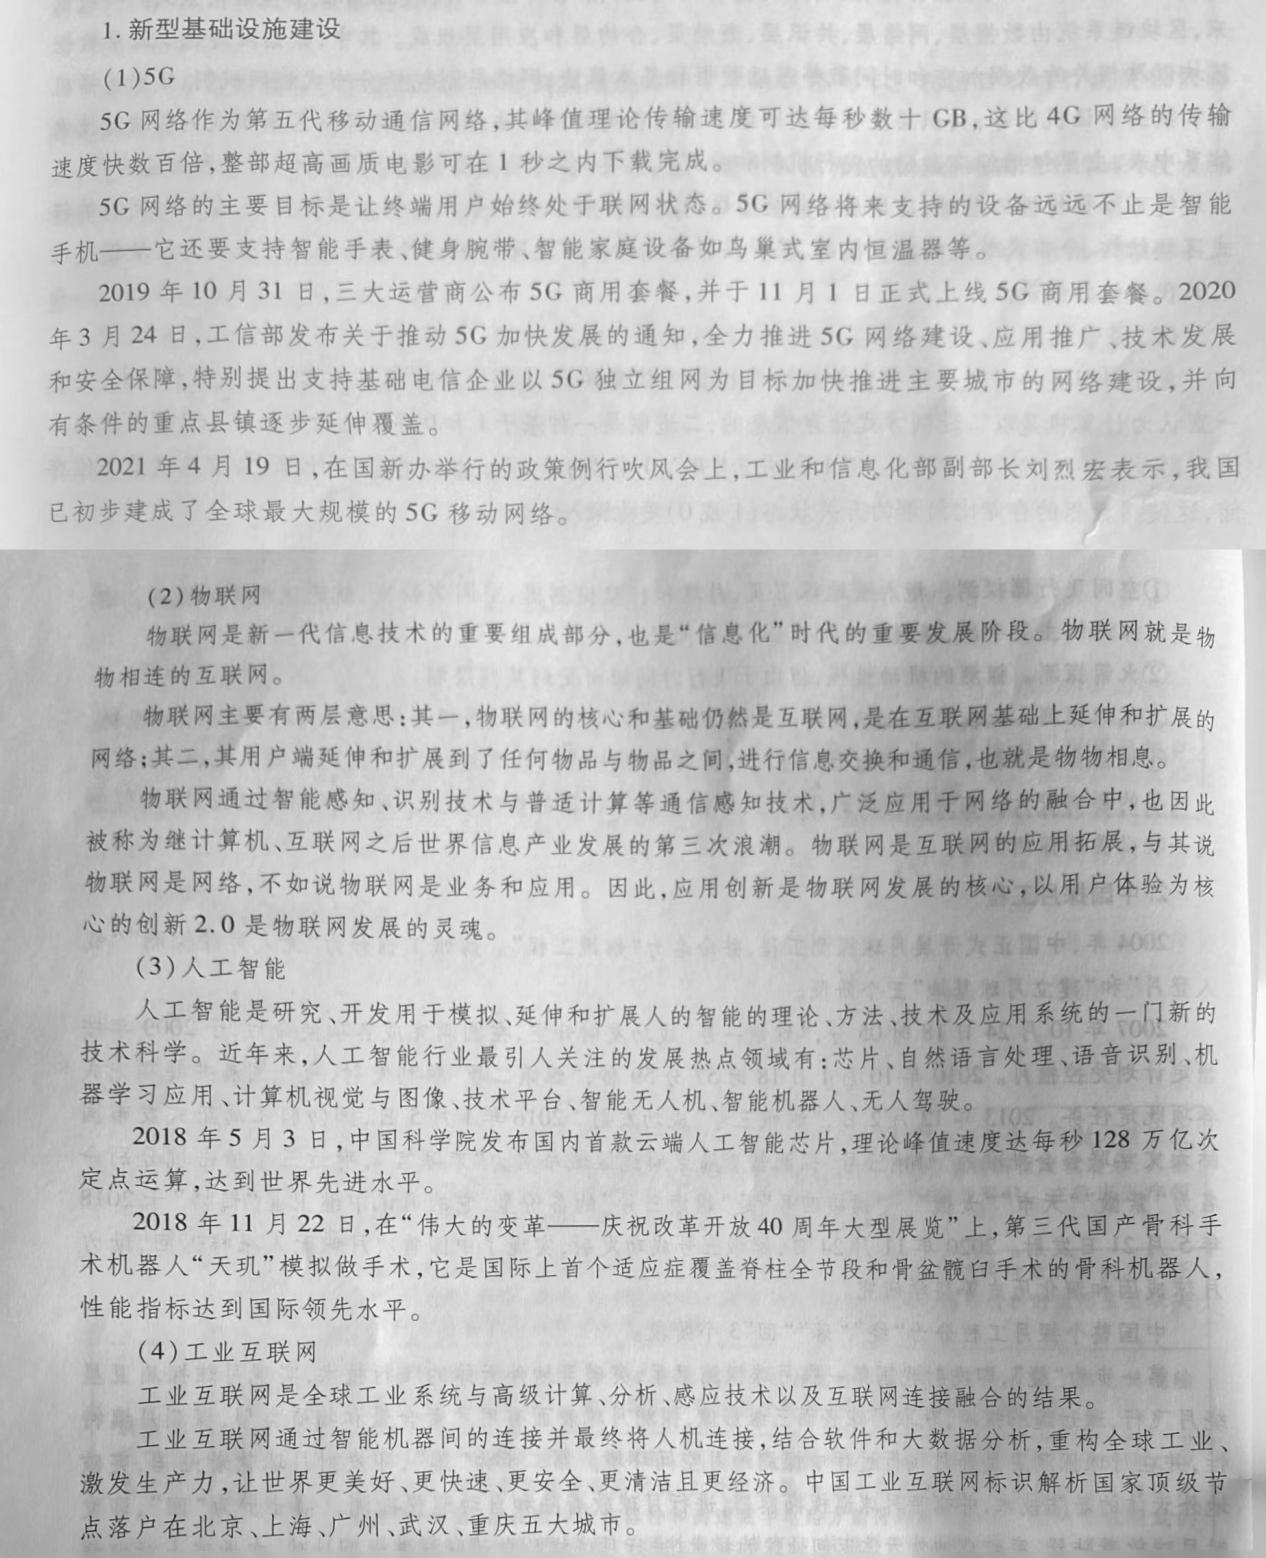 1. 新型基础设施建设
(1)5G
5G 网络作为第五代移动通信网络,其峰值理论传输速度可达每秒数十 GB,这比 4G 网络的传输
速度快数百倍,整部超高画质电影可在 1 秒之内下载完成。
5G 网络的主要目标是让终端用户始终处于联网状态。5G 网络将来支持的设备远远不止是智能
手机——它还要支持智能手表、健身腕带、智能家庭设备如鸟巢式室内恒温器等。
2019 年 10 月 31 日,三大运营商公布 5G 商用套餐,并于 11 月 1 日正式上线 5G 商用套餐。2020
年 3 月 24 日,工信部发布关于推动 5G 加快发展的通知,全力推进 5G 网络建设、应用推广、技术发展
和安全保障,特别提出支持基础电信企业以 5G 独立组网为目标加快推进主要城市的网络建设,并向
有条件的重点县镇逐步延伸覆盖。
2021 年 4 月 19 日,在国新办举行的政策例行吹风会上,工业和信息化部副部长刘烈宏表示,我国
已初步建成了全球最大规模的 5G 移动网络。
(2)物联网
物联网是新一代信息技术的重要组成部分,也是“信息化”时代的重要发展阶段。物联网就是物
物相连的互联网。
物联网主要有两层意思:其一,物联网的核心和基础仍然是互联网,是在互联网基础上延伸和扩展的
网络;其二,其用户端延伸和扩展到了任何物品与物品之间,进行信息交换和通信,也就是物物相息。
物联网通过智能感知、识别技术与普适计算等通信感知技术,广泛应用于网络的融合中,也因此
被称为继计算机、互联网之后世界信息产业发展的第三次浪潮。物联网是互联网的应用拓展,与其说
物联网是网络,不如说物联网是业务和应用。因此,应用创新是物联网发展的核心,以用户体验为核
心的创新 2.0 是物联网发展的灵魂。
(3)人工智能
人工智能是研究、开发用于模拟、延伸和扩展人的智能的理论、方法、技术及应用系统的一门新的
技术科学。近年来,人工智能行业最引人关注的发展热点领域有:芯片、自然语言处理、语音识别、机
器学习应用、计算机视觉与图像、技术平台、智能无人机、智能机器人、无人驾驶。
2018 年 5 月 3 日,中国科学院发布国内首款云端人工智能芯片,理论峰值速度达每秒 128 万亿次
定点运算,达到世界先进水平。
2018 年 11 月 22 日,在“伟大的变革——庆祝改革开放 40 周年大型展览”上,第三代国产骨科手
术机器人“天玑”模拟做手术,它是国际上首个适应症覆盖脊柱全节段和骨盆髋臼手术的骨科机器人,
性能指标达到国际领先水平。
(4)工业互联网
工业互联网是全球工业系统与高级计算、分析、感应技术以及互联网连接融合的结果。
工业互联网通过智能机器间的连接并最终将人机连接,结合软件和大数据分析,重构全球工业、
激发生产力,让世界更美好、更快速、更安全、更清洁且更经济。中国工业互联网标识解析国家顶级节
点落户在北京、上海、广州、武汉、重庆五大城市。